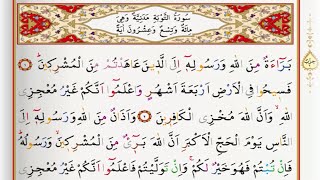 سُورَةُ التَّوْبَةِ مَدَنِيَّةٌ وَهِيَ
مِائَةٌ وَتِسْعٌ وَعِشْرُونَ آيَةً
بَرَٓاءَةٌ مِنَ اللّٰهِ وَرَسُولِه۪ٓ اِلَى الَّذ۪ينَ عَاهَدْتُمْ مِنَ الْمُشْرِك۪ينَۜ ﴿١﴾
فَس۪يحُوا فِي الْاَرْضِ اَرْبَعَةَ اَشْهُرٍ وَاعْلَمُٓوا اَنَّكُمْ غَيْرُ مُعْجِزِي
اللّٰهِۙ وَاَنَّ اللّٰهَ مُخْزِي الْكَافِر۪ينَ ﴿٢﴾ وَاَذَانٌ مِنَ اللّٰهِ وَرَسُولِه۪ٓ اِلَى
النَّاسِ يَوْمَ الْحَجِّ الْاَكْبَرِ اَنَّ اللّٰهَ بَر۪ٓيءٌ مِنَ الْمُشْرِك۪ينَۙ وَرَسُولُهُۜ
فَاِنْ تُبْتُمْ فَهُوَ خَيْرٌ لَكُمْۚ وَاِنْ تَوَلَّيْتُمْ فَاعْلَمُٓوا اَنَّكُمْ غَيْرُ مُعْجِزِي